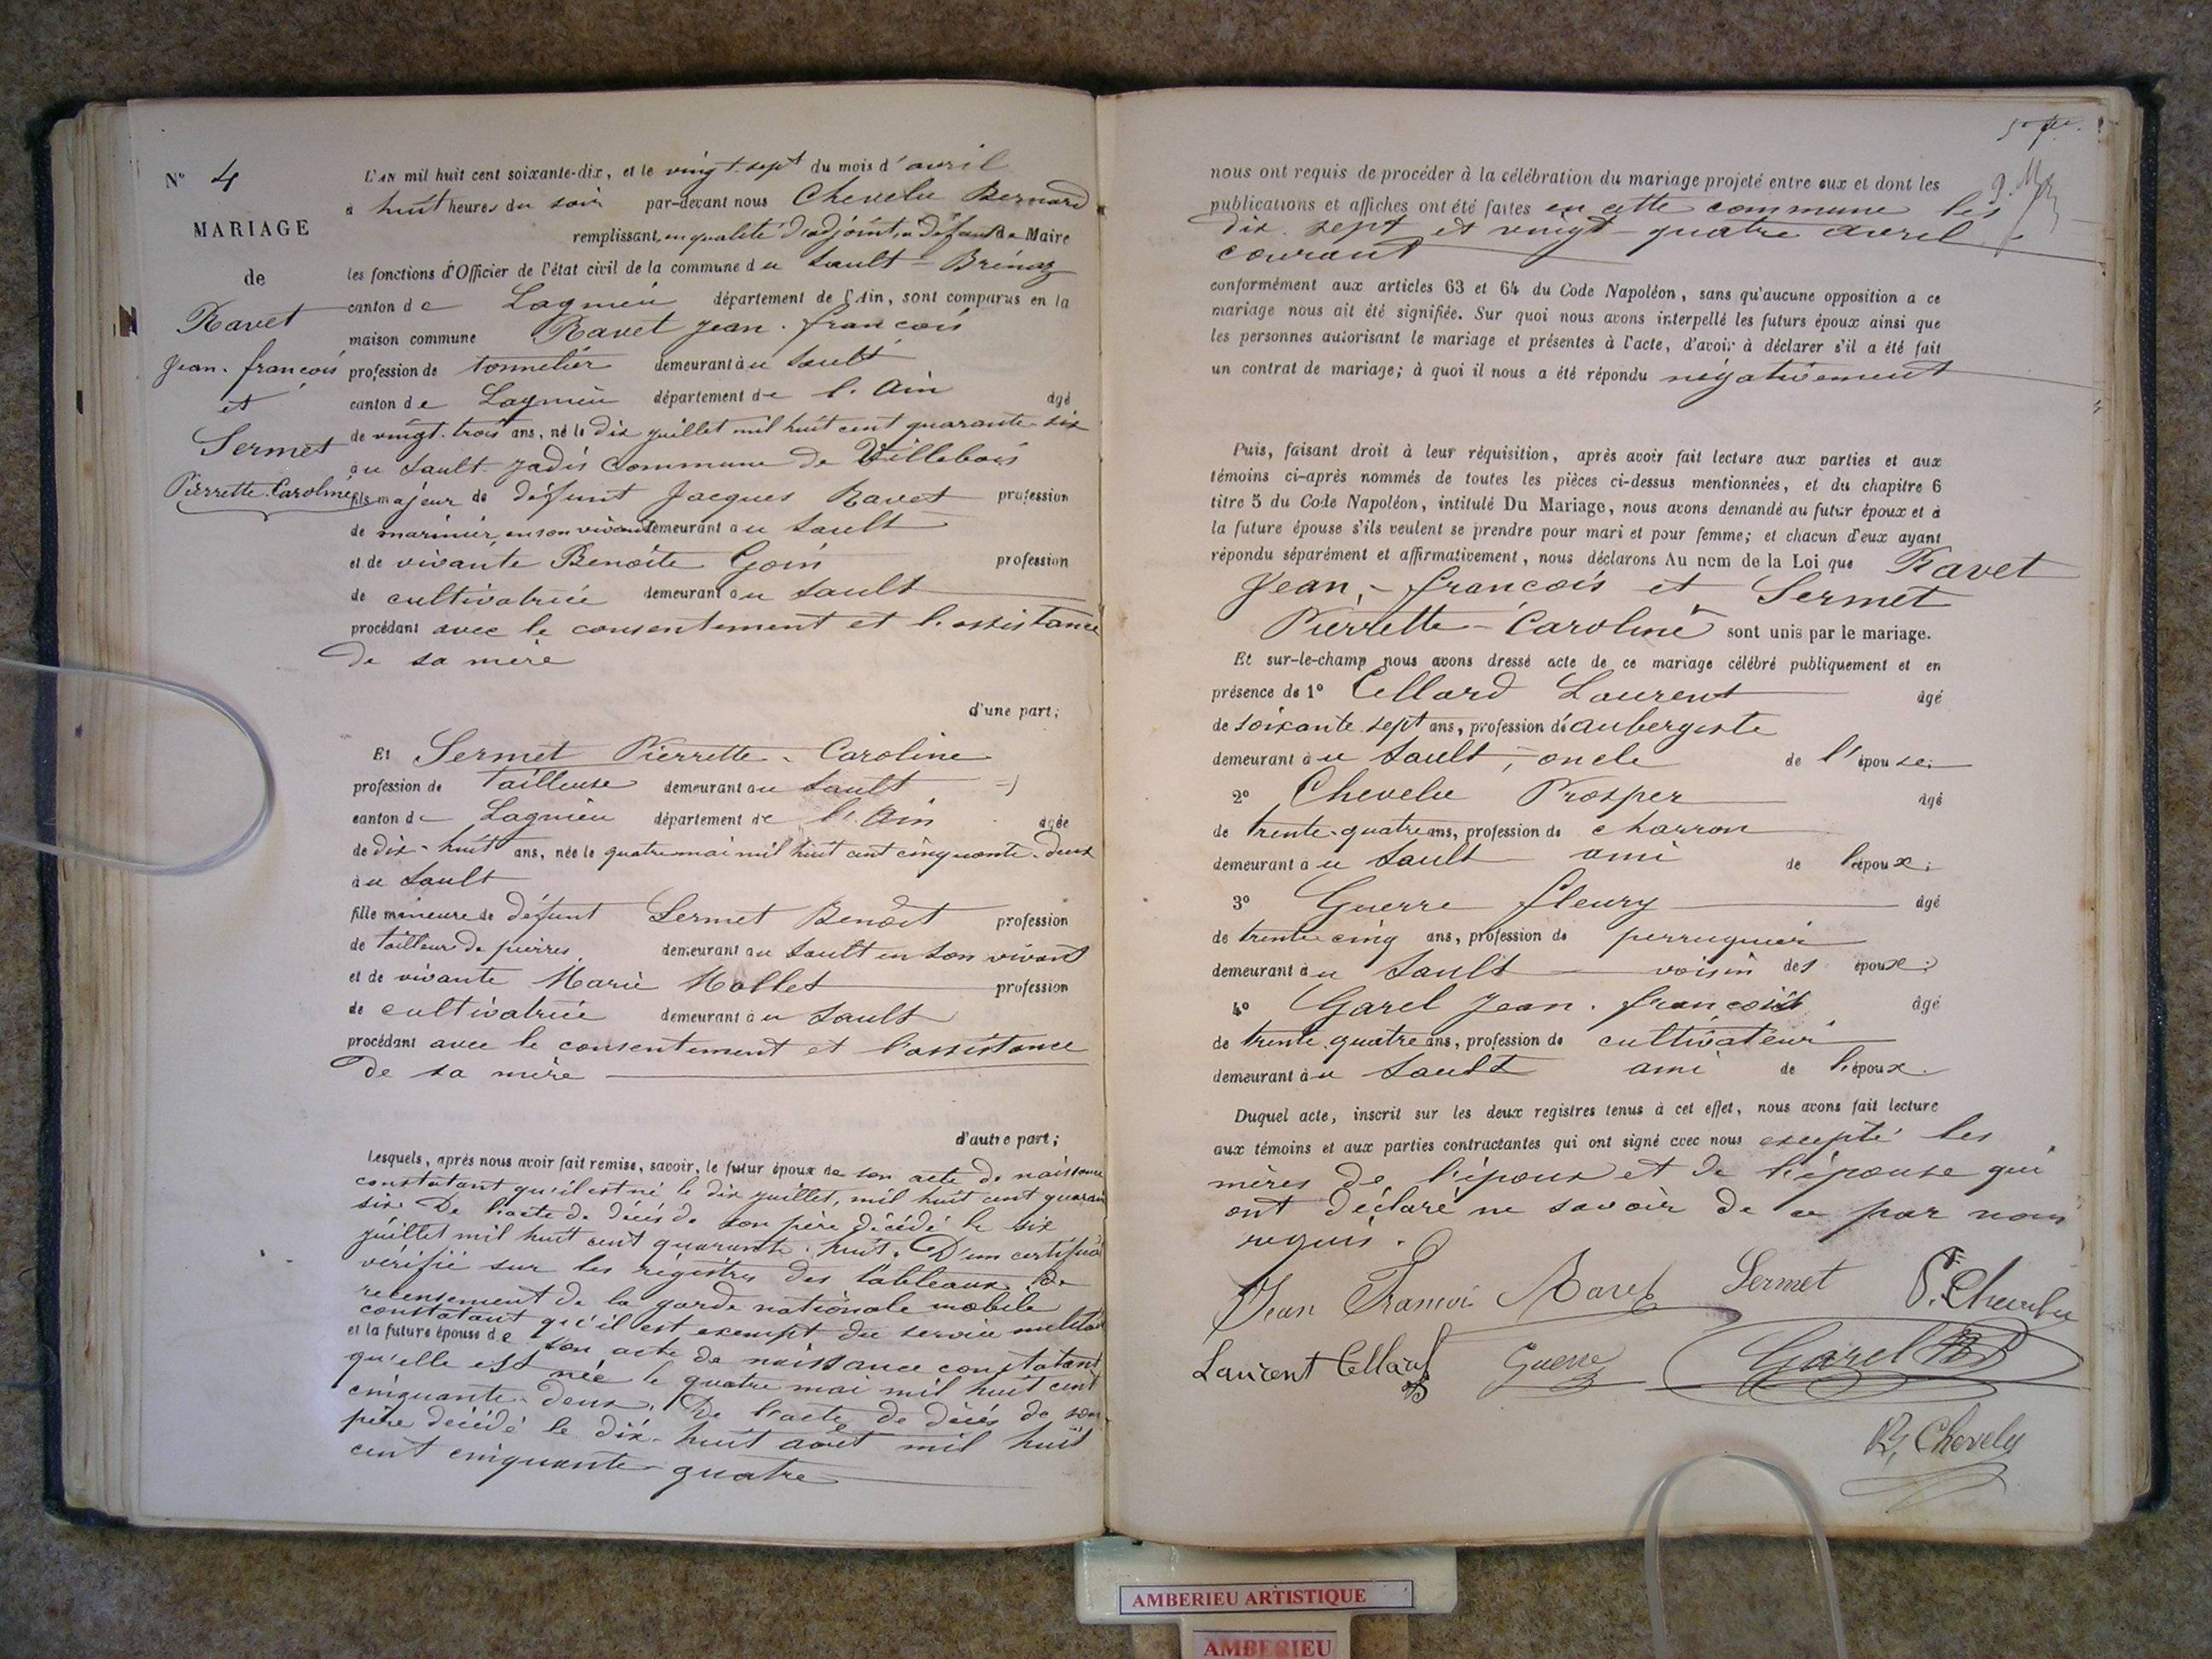 N° 4
MARIAGE
de
Ravet
Jean-françois
et
Sermet
Pierrette-Caroline
L'AN mil huit cent soixante-dix, et le vingt-sept du mois d'avril
à huit heures du soir par-devant nous Chevelu Bernard
remplissant, en qualité d'adjoint, à défaut de Maire
les fonctions d'Officier de l'état civil de la commune du Sault-Brénaz
canton de Lagnieu département de l'Ain, sont comparus en la
maison commune Ravet Jean-françois
profession de tonnelier demeurant à au Sault
canton de Lagnieu département de l'Ain âgé
de vingt-trois ans, né le dix juillet mil huit cent quarante-six
au Sault jadis Commune de Villebois
fils majeur de défunt Jacques Ravet profession
de marinier, en son vivant demeurant au Sault
et de vivante Benoîte Goin profession
de cultivatrice demeurant au Sault
procédant avec le consentement et l'assistance
de sa mère
d'une part;
Et Sermet Pierrette-Caroline
profession de tailleuse demeurant au Sault
canton de Lagnieu département de l'Ain âgée
de dix-huit ans, née le quatre mai mil huit cent cinquante-deux
au Sault
fille mineure de défunt Sermet Benoît profession
de tailleur de pierres demeurant au Sault en son vivant
et de vivante Marie Mollet profession
de cultivatrice demeurant à au Sault
procédant avec le consentement et l'assistance
de sa mère
d'autre part;
Lesquels, après nous avoir fait remise, savoir, le futur époux de son acte de naissance
constatant qu'il est né le dix juillet, mil huit cent quarante
six. De l'acte de décès de son père décédé le six
juillet mil huit cent quarante-huit. D'un certificat
vérifié sur les régistres des tableaux de
recensement de la garde nationale mobile
constatant qu'il est exempt du service militaire
et la future épouse de son acte de naissance constatant
qu'elle est née le quatre mai mil huit cent
cinquante-deux. De l'acte de décès de son
père décédé le dix-huit août mil huit
cent cinquante-quatre
nous ont requis de procéder à la célébration du mariage projeté entre eux et dont les
publications et affiches ont été faites en cette commune les
dix-sept et vingt-quatre avril
courant
conformément aux articles 63 et 64 du Code Napoléon, sans qu'aucune opposition à ce
mariage nous ait été signifiée. Sur quoi nous avons interpellé les futurs époux ainsi que
les personnes autorisant le mariage et présentes à l'acte, d'avoir à déclarer s'il a été fait
un contrat de mariage; à quoi il nous a été répondu négativement
Puis, faisant droit à leur réquisition, après avoir fait lecture aux parties et aux
témoins ci-après nommés de toutes les pièces ci-dessus mentionnées, et du chapitre 6
titre 5 du Code Napoléon, intitulé Du Mariage, nous avons demandé au futur époux et à
la future épouse s'ils veulent se prendre pour mari et pour femme; et chacun d'eux ayant
répondu séparément et affirmativement, nous déclarons Au nom de la Loi que Ravet
Jean-françois et Sermet
Pierrette-Caroline sont unis par le mariage.
Et sur-le-champ nous avons dressé acte de ce mariage célébré publiquement et en
présence de 1° Cellard Laurent âgé
de soixante sept ans, profession d'aubergiste
demeurant à au Sault, oncle de l'épouse;
2° Chevelu Prosper âgé
de trente-quatre ans, profession de charron
demeurant à au Sault ami de l'époux;
3° Guerre fleury âgé
de trente cinq ans, profession de perruquier
demeurant à au Sault voisin des époux;
4° Garel Jean-françois âgé
de trente quatre ans, profession de cultivateur
demeurant à au Sault ami de l'époux.
Duquel acte, inscrit sur les deux registres tenus à cet effet, nous avons fait lecture
aux témoins et aux parties contractantes qui ont signé avec nous excepté les
mères de l'époux et de l'épouse qui
ont déclaré ne savoir de ce par nous
requis.
Jean François Ravet Sermet P. Chevelu
Laurent Cellard Guerre Garel
B. Chevelu
AMBERIEU ARTISTIQUE
AMBERIEU